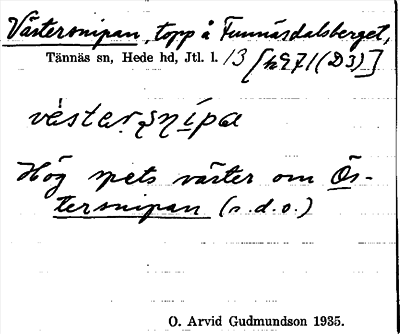 Västersnipan, topp å Funnäsdalsberget,
Tännäs sn, Hede hd, Jtl. l. 13 [h971(D3)]
vèstersnípa
Hög spets väster om Ös-
tersnipan (s.d.o.)
O. Arvid Gudmundson 1935.